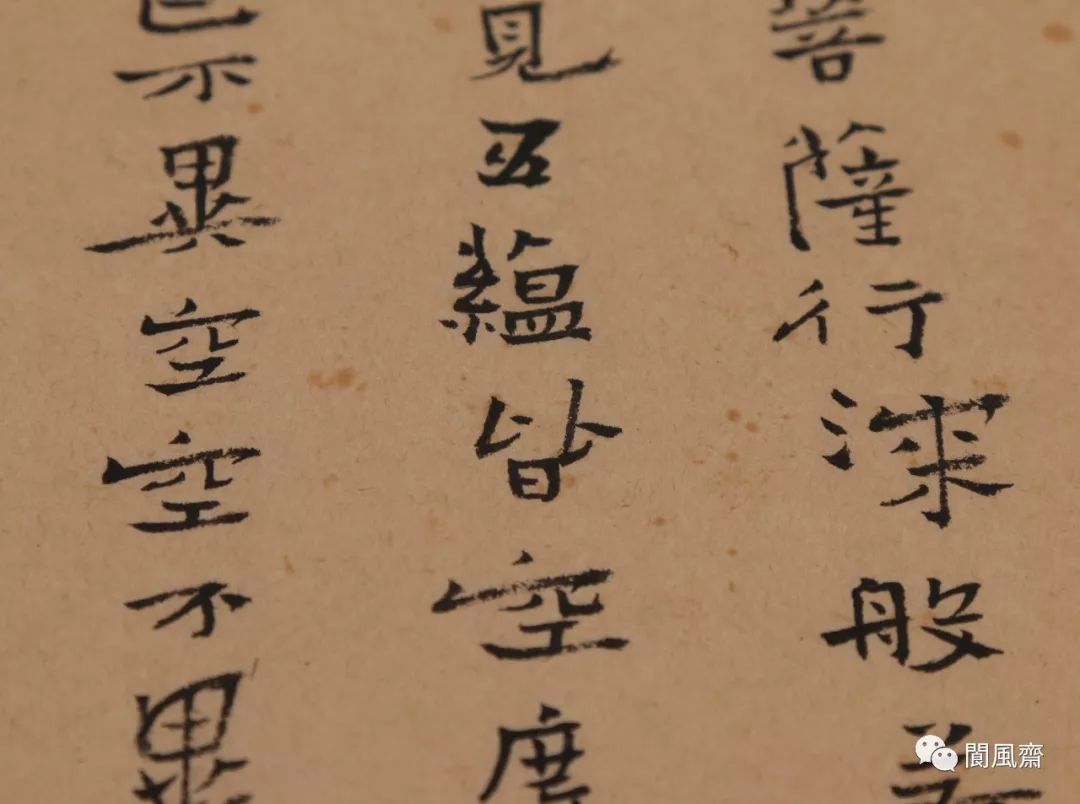 菩薩行深般若
見五蘊皆空度
色不異空空不異
閬風齋